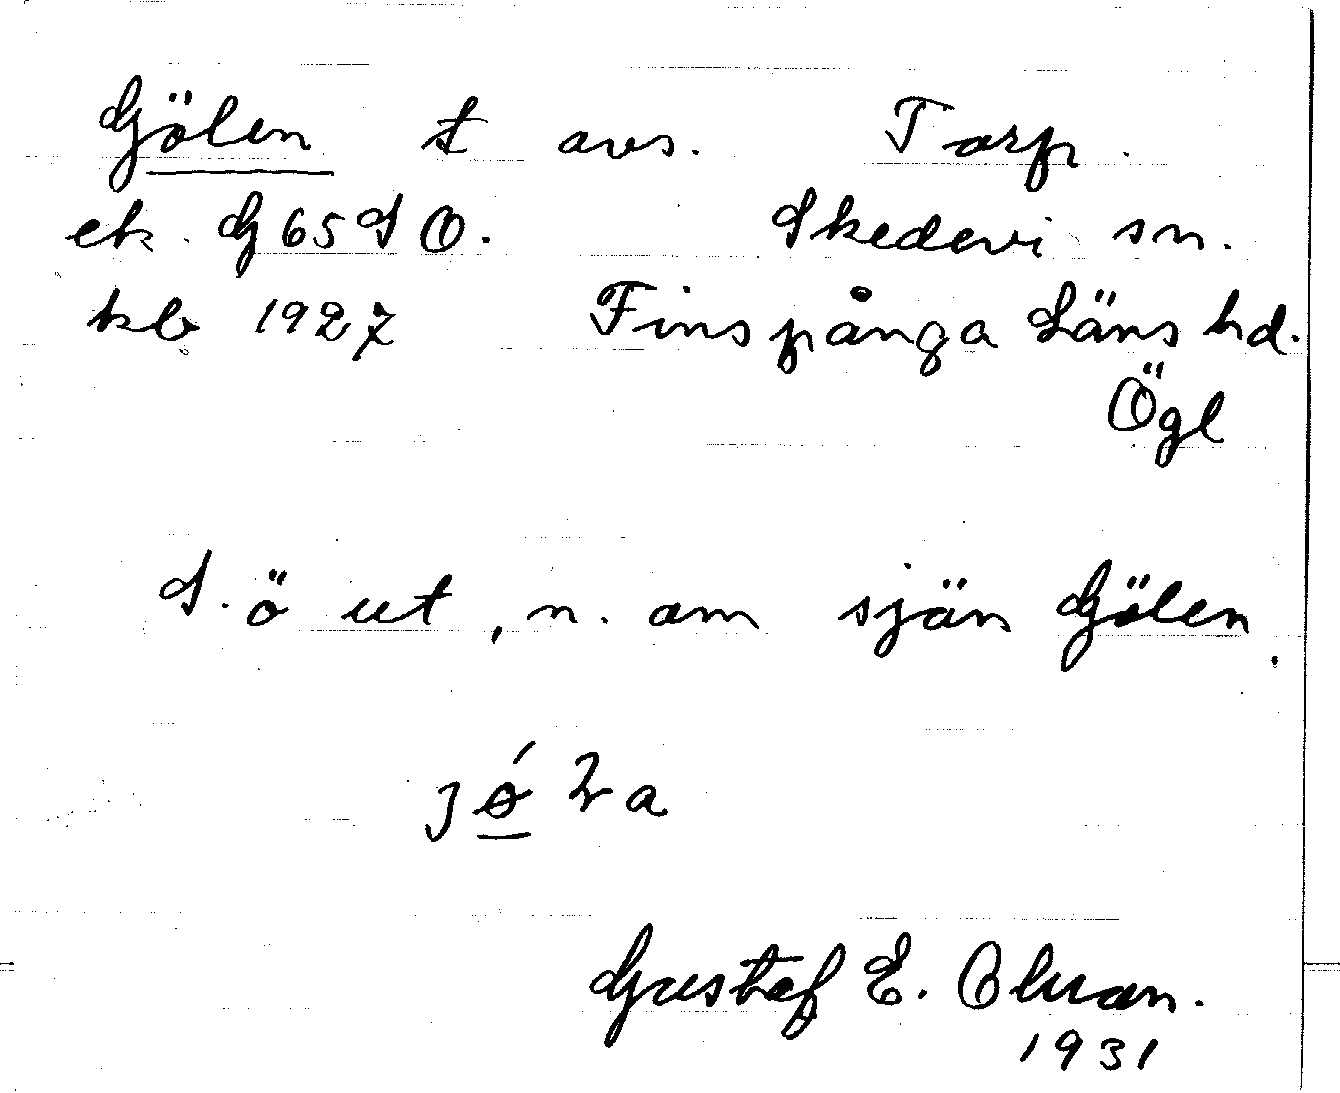 Gölen t avs. Torp.
ek. G65SO. Skedevi sn.
kb 1927 Finspånga Läns hd.
Ögl
S. ö ut, n. om sjön Gölen.
Gustaf E. Olson.
1931